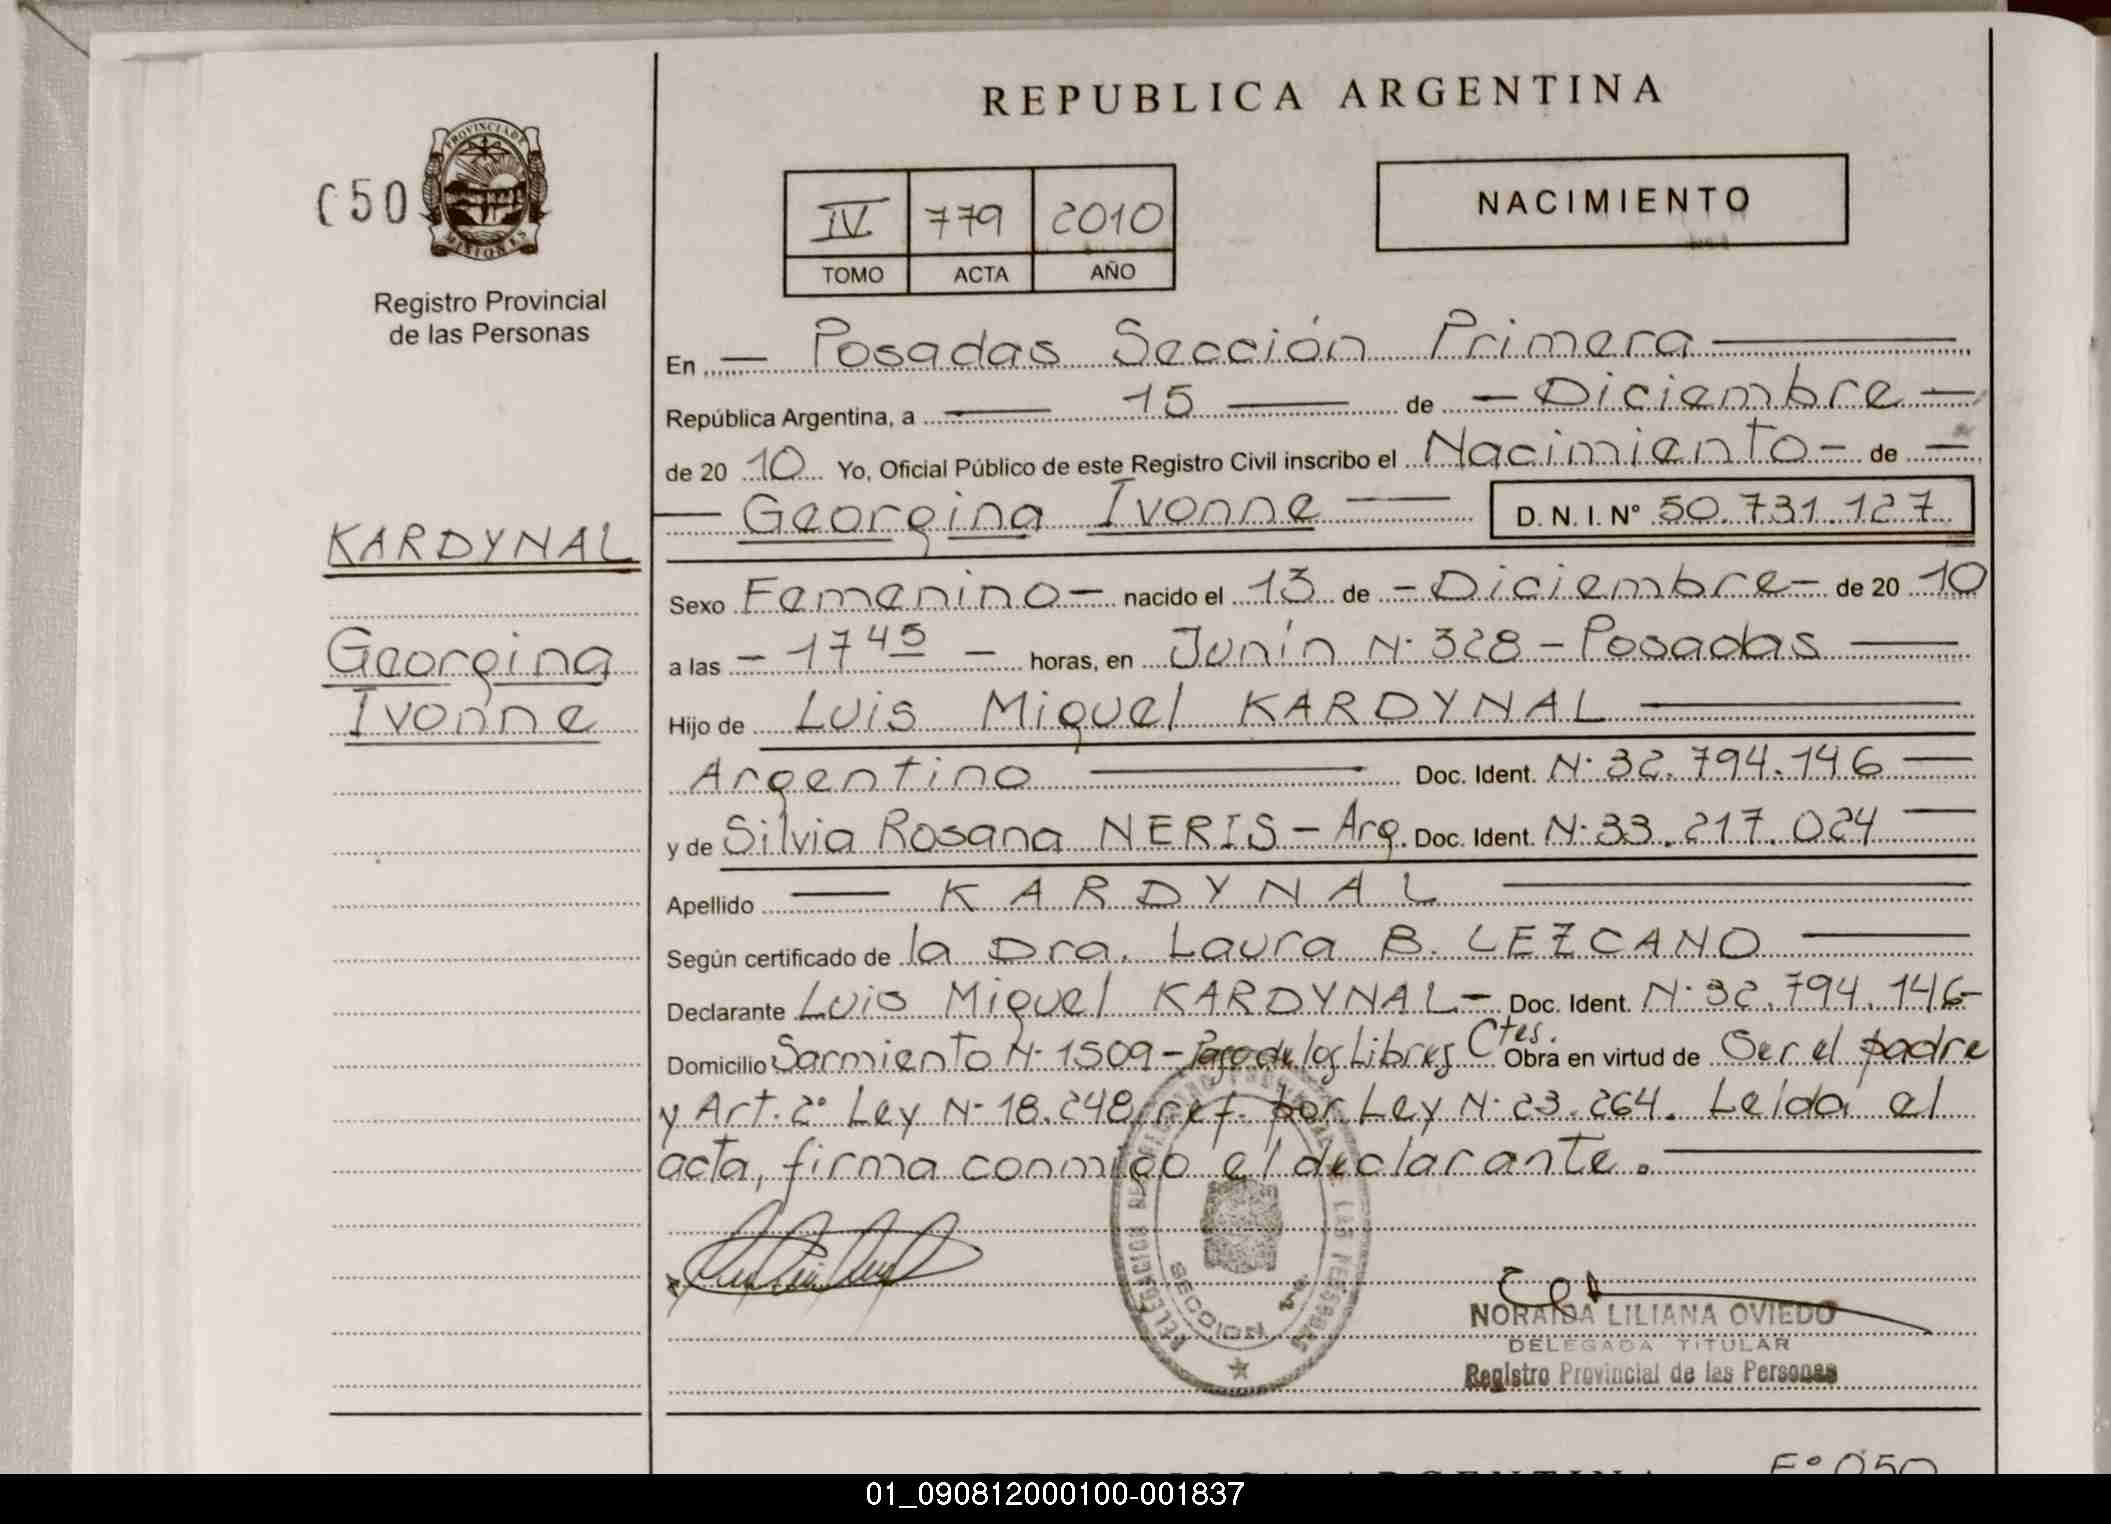 REPUBLICA ARGENTINA
050
PROVINCIA DE MISIONES
Registro Provincial
de las Personas
IV 779 2010
TOMO ACTA AÑO
NACIMIENTO
En — Posadas Sección Primera —
República Argentina, a — 15 — de — Diciembre —
de 20 10 Yo, Oficial Público de este Registro Civil inscribo el Nacimiento - de —
— Georgina Ivonne — D. N. I. Nº 50.731.127
KARDYNAL
Georgina
Ivonne
Sexo Femenino — nacido el 13 de - Diciembre - de 20 10
a las - 17 45 - horas, en Junín N· 328 - Posadas —
Hijo de Luis Miguel KARDYNAL —
Argentino — Doc. Ident. N· 32.794.146 —
y de Silvia Rosana NERIS - Arg. Doc. Ident. N· 33.217.024 —
Apellido — KARDYNAL —
Según certificado de la Dra. Laura B. LEZCANO —
Declarante Luis Miguel KARDYNAL - Doc. Ident. N· 32.794.146-
Domicilio Sarmiento N· 1509 - Paso de los Libres Ctes. Obra en virtud de Ser el padre
y Art. 2º Ley N· 18.248, ref. por Ley N· 23.264. Leída el
acta, firma conmigo el declarante. —
DELEGACION DEL REGISTRO PROVINCIAL DE LAS PERSONAS
SECCION 1a
NORAIDA LILIANA OVIEDO
DELEGADA TITULAR
Registro Provincial de las Personas
REPUBLICA ARGENTINA
Fº 050
01_090812000100-001837